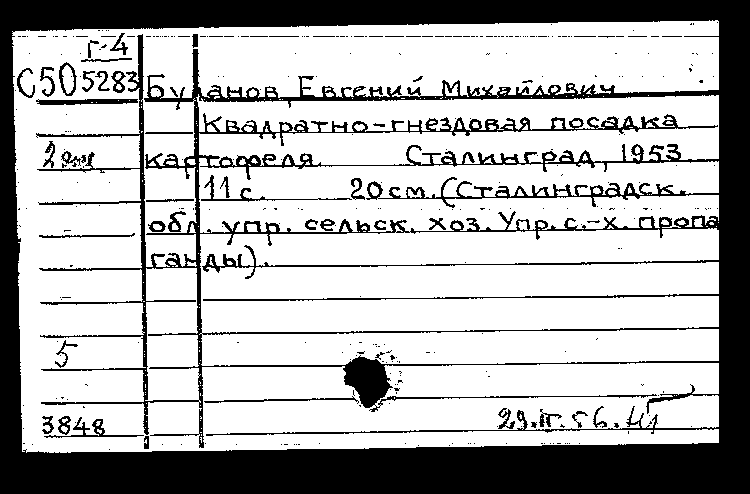 г-4
С50 5283 Буланов, Евгений Михайлович
Квадратно-гнездовая посадка
2 экз картофеля. Сталинград, 1953
11 с. 20 см. (Сталинградск.
обл. упр. сельск. хоз. Упр. с.-х. пропа
ганды).
5
3848
29.IV.56.